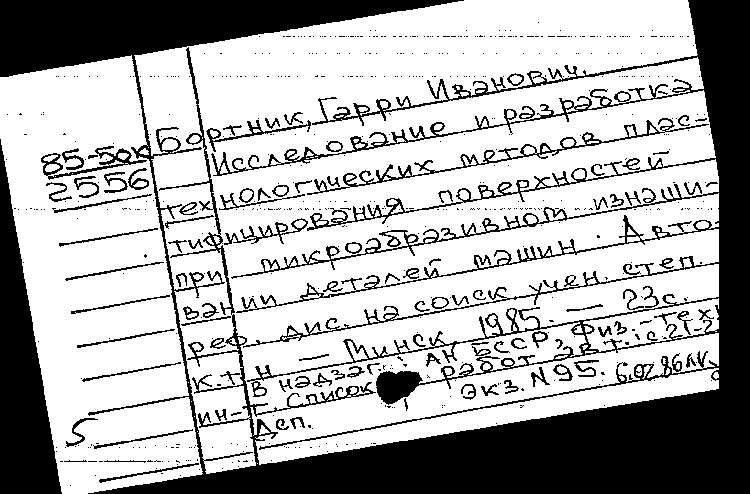 Бортник, Гэрри Иванович.
85-5ок
2556
Исследование и разработка
технологических методов плас-
тифицирования поверхностей
при микроабразивном изнаши-
вании деталей машин. Авто-
реф. дис. на соиск учен. степ.
к.т.н — Минск, 1985. — 23с.
В надзаг.: АН БССР, Физ.-техн
ин-т. Список работ авт.: с. 21-2
Экз. N 95.
Деп.
5